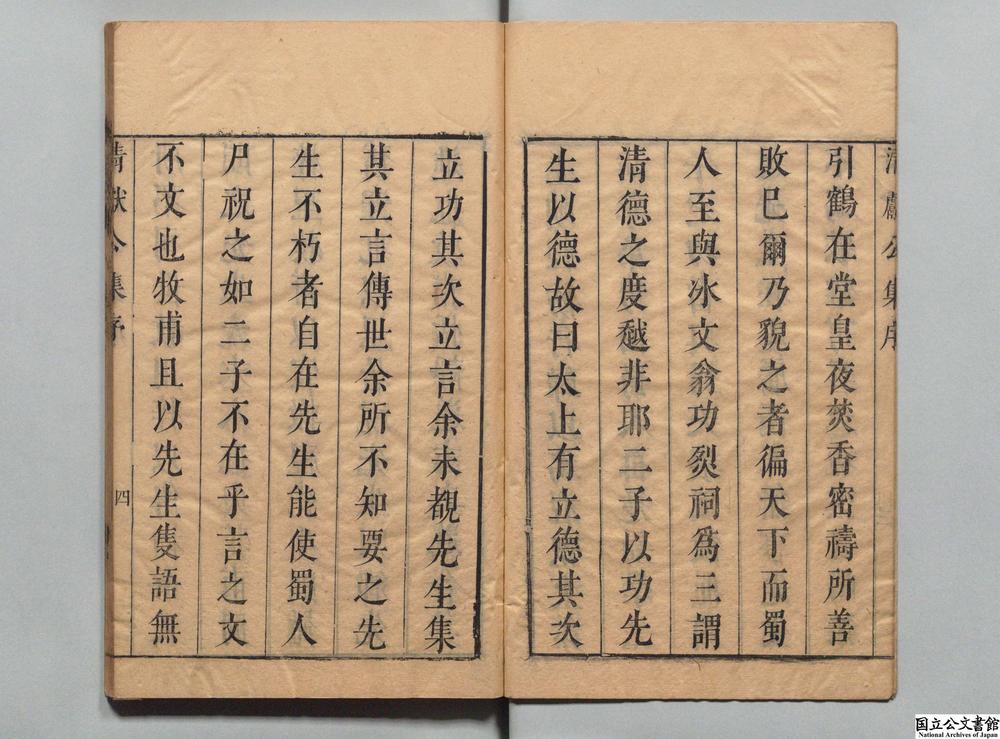 清獻公集序
引鶴在堂皇夜焚香密禱所善
敗已爾乃貌之者徧天下而蜀
人至與氷文翁功裂祠為三謂
清德之度越非耶二子以功先
生以德故曰太上有立德其次
立功其次立言余未覩先生集
其立言傳世余所不知要之先
生不朽者自在先生能使蜀人
尸祝之如二子不在乎言之文
不文也牧甫且以先生隻語無
清獻公集序
四
国立公文書館
National Archives of Japan